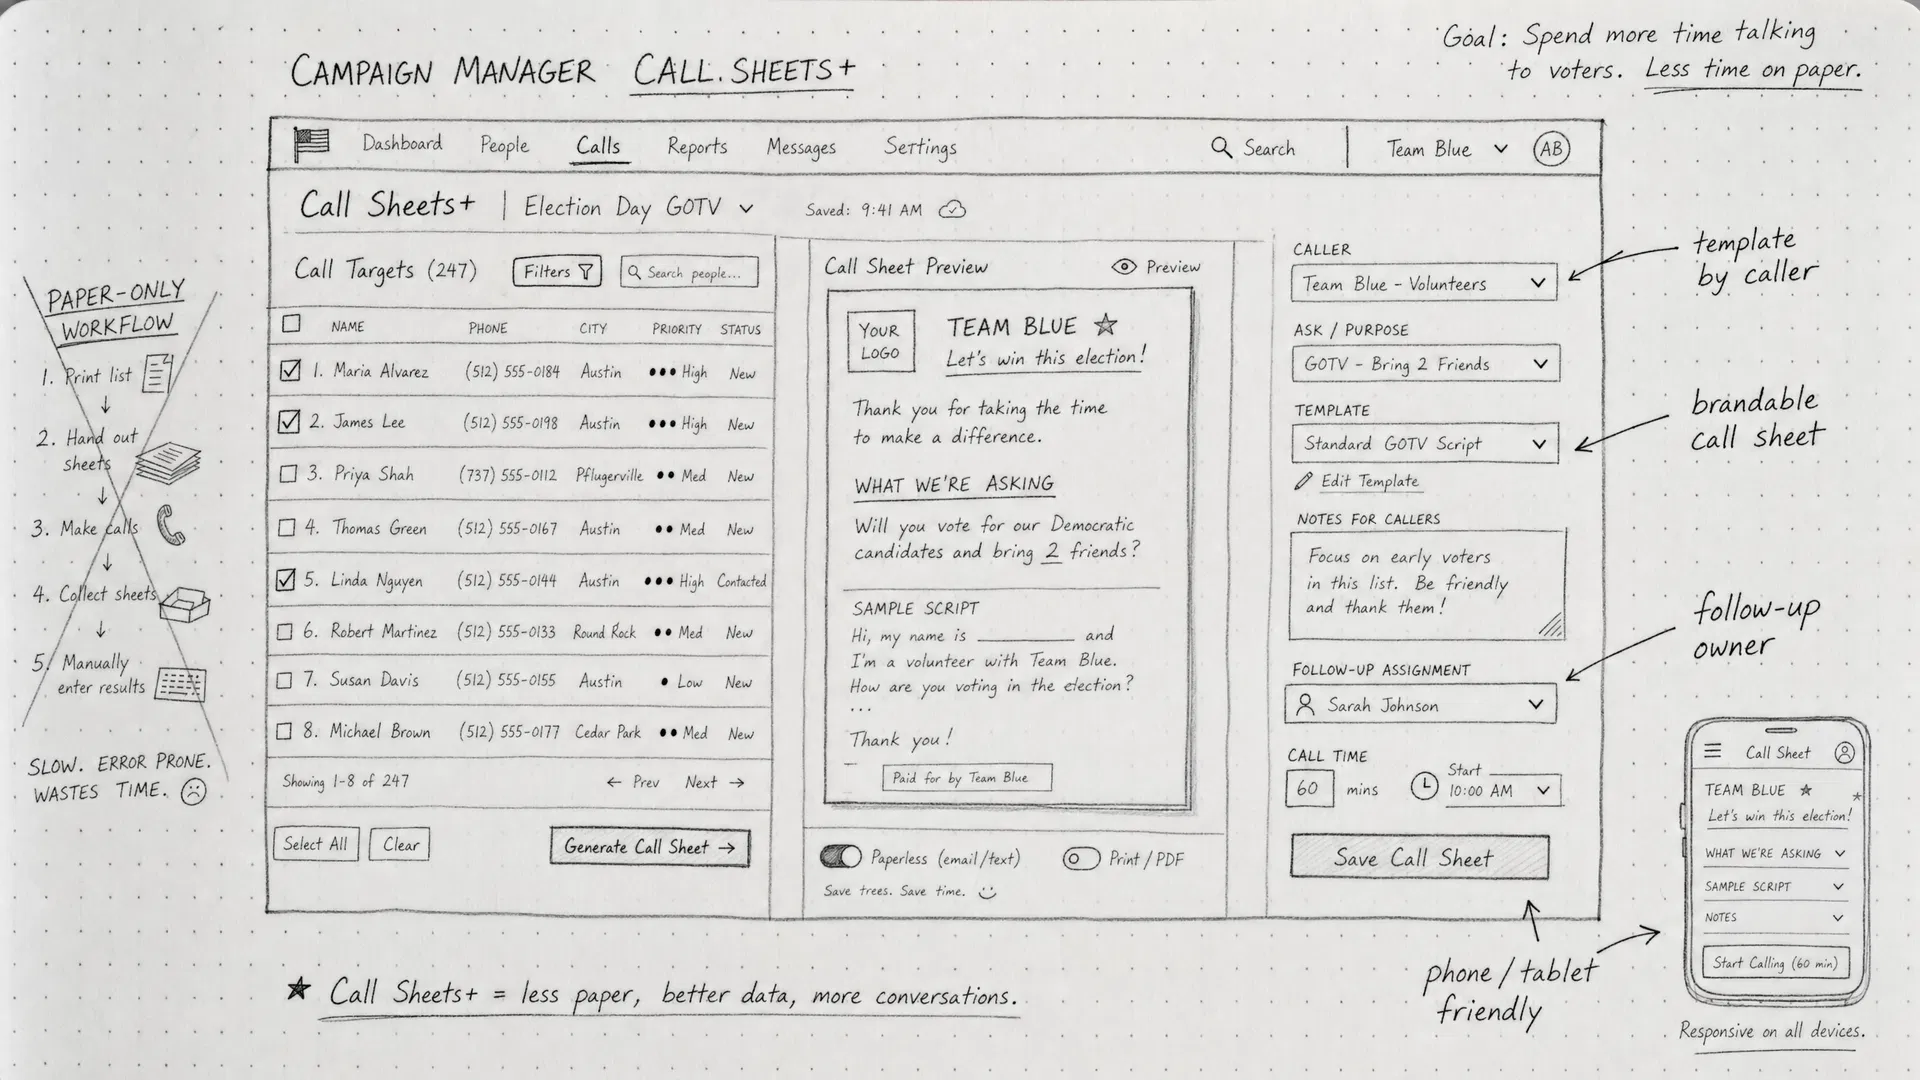 CAMPAIGN MANAGER CALL.SHEETS+
Goal: Spend more time talking
to voters. Less time on paper.
Dashboard People Calls Reports Messages Settings Search Team Blue AB
Call Sheets+ | Election Day GOTV Saved: 9:41 AM
PAPER-ONLY
WORKFLOW
1. Print list
2. Hand out
sheets
3. Make calls
4. Collect sheets
5. Manually
enter results
SLOW. ERROR PRONE.
WASTES TIME.
Call Targets (247) Filters Search people...
NAME PHONE CITY PRIORITY STATUS
1. Maria Alvarez (512) 555-0184 Austin ••• High New
2. James Lee (512) 555-0198 Austin ••• High New
3. Priya Shah (737) 555-0112 Pflugerville •• Med New
4. Thomas Green (512) 555-0167 Austin •• Med New
5. Linda Nguyen (512) 555-0144 Austin ••• High Contacted
6. Robert Martinez (512) 555-0133 Round Rock •• Med New
7. Susan Davis (512) 555-0155 Austin • Low New
8. Michael Brown (512) 555-0177 Cedar Park •• Med New
Showing 1-8 of 247 ← Prev Next →
Select All Clear Generate Call Sheet →
Call Sheet Preview Preview
YOUR
LOGO
TEAM BLUE
Let's win this election!
Thank you for taking the time
to make a difference.
WHAT WE'RE ASKING
Will you vote for our Democratic
candidates and bring 2 friends?
SAMPLE SCRIPT
Hi, my name is __________ and
I'm a volunteer with Team Blue.
How are you voting in the election?
...
Thank you!
Paid for by Team Blue
Paperless (email/text) Print / PDF
Save trees. Save time.
CALLER
Team Blue - Volunteers
ASK / PURPOSE
GOTV - Bring 2 Friends
TEMPLATE
Standard GOTV Script
Edit Template
NOTES FOR CALLERS
Focus on early voters
in this list. Be friendly
and thank them!
FOLLOW-UP ASSIGNMENT
Sarah Johnson
CALL TIME
60 mins
Start
10:00 AM
Save Call Sheet
template
by caller
brandable
call sheet
follow-up
owner
phone / tablet
friendly
Call Sheet
TEAM BLUE
Let's win this election!
WHAT WE'RE ASKING
SAMPLE SCRIPT
NOTES
Start Calling (60 min)
Responsive on all devices.
★ Call Sheets+ = less paper, better data, more conversations.